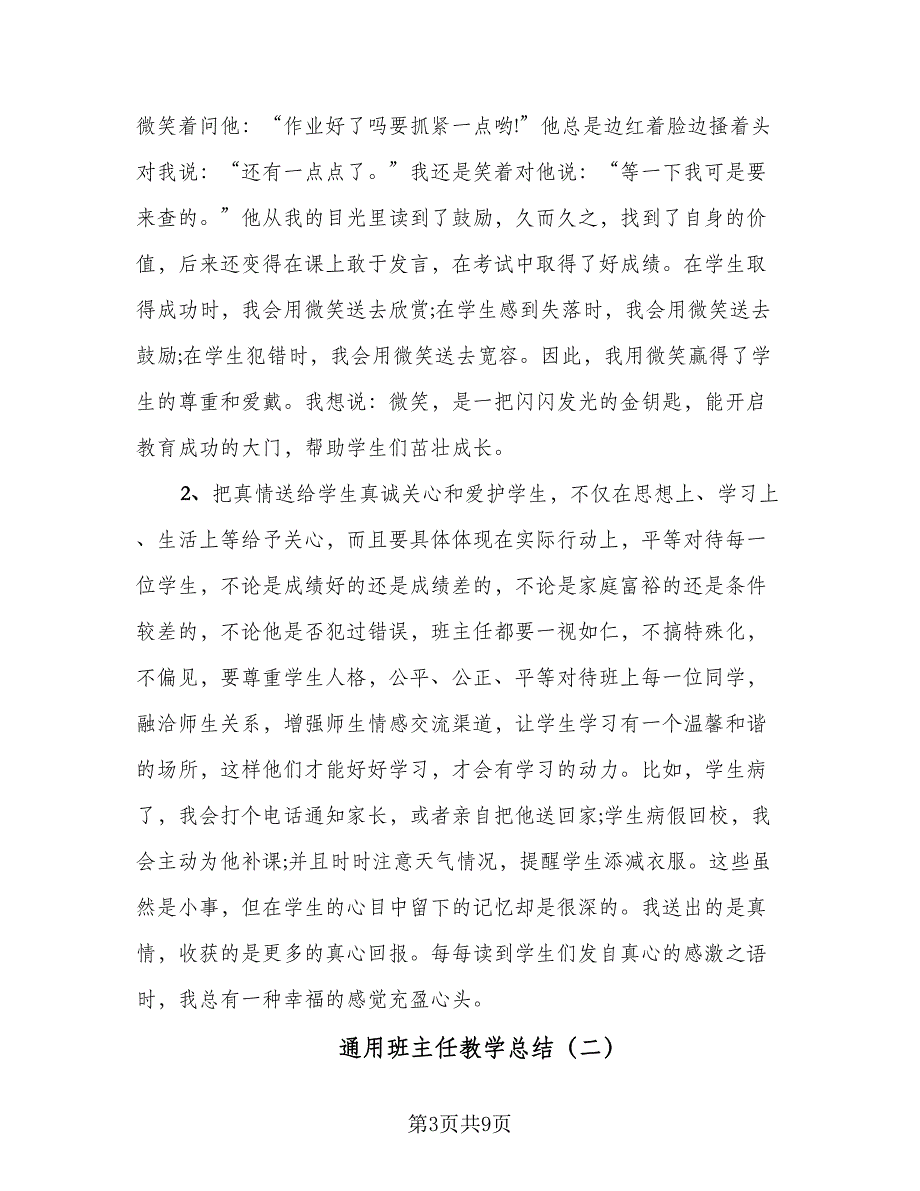 微笑着问他：“作业好了吗要抓紧一点哟!”他总是边红着脸边搔着头
对我说：“还有一点点了。”我还是笑着对他说：“等一下我可是要
来查的。”他从我的目光里读到了鼓励，久而久之，找到了自身的价
值，后来还变得在课上敢于发言，在考试中取得了好成绩。在学生取
得成功时，我会用微笑送去欣赏;在学生感到失落时，我会用微笑送去
鼓励;在学生犯错时，我会用微笑送去宽容。因此，我用微笑赢得了学
生的尊重和爱戴。我想说：微笑，是一把闪闪发光的金钥匙，能开启
教育成功的大门，帮助学生们茁壮成长。
2、把真情送给学生真诚关心和爱护学生，不仅在思想上、学习上
、生活上等给予关心，而且要具体体现在实际行动上，平等对待每一
位学生，不论是成绩好的还是成绩差的，不论是家庭富裕的还是条件
较差的，不论他是否犯过错误，班主任都要一视如仁，不搞特殊化，
不偏见，要尊重学生人格，公平、公正、平等对待班上每一位同学，
融洽师生关系，增强师生情感交流渠道，让学生学习有一个温馨和谐
的场所，这样他们才能好好学习，才会有学习的动力。比如，学生病
了，我会打个电话通知家长，或者亲自把他送回家;学生病假回校，我
会主动为他补课;并且时时注意天气情况，提醒学生添减衣服。这些虽
然是小事，但在学生的心目中留下的记忆却是很深的。我送出的是真
情，收获的是更多的真心回报。每每读到学生们发自真心的感激之语
时，我总有一种幸福的感觉充盈心头。
通用班主任教学总结（二）
第3页共9页